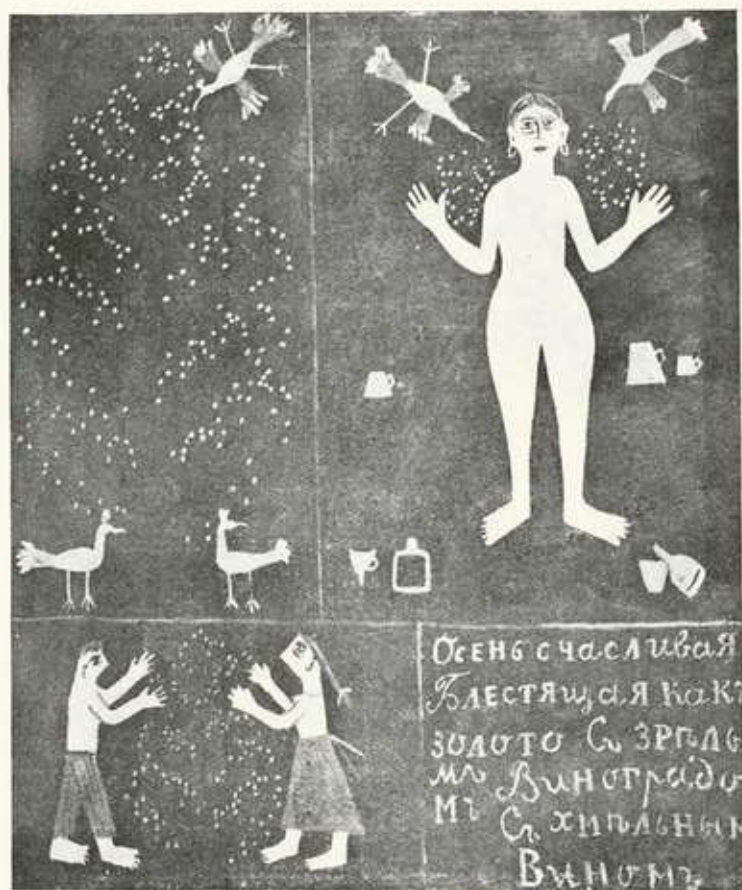 Осень счасливая
Блестящая какъ
золото Съ зрѣлы
мъ Виноградо
мъ Съ хиѣльным
Виномъ